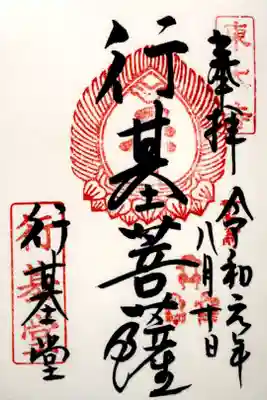 奉拝
令和元年
八月十日
行基菩薩
行基堂
行基堂